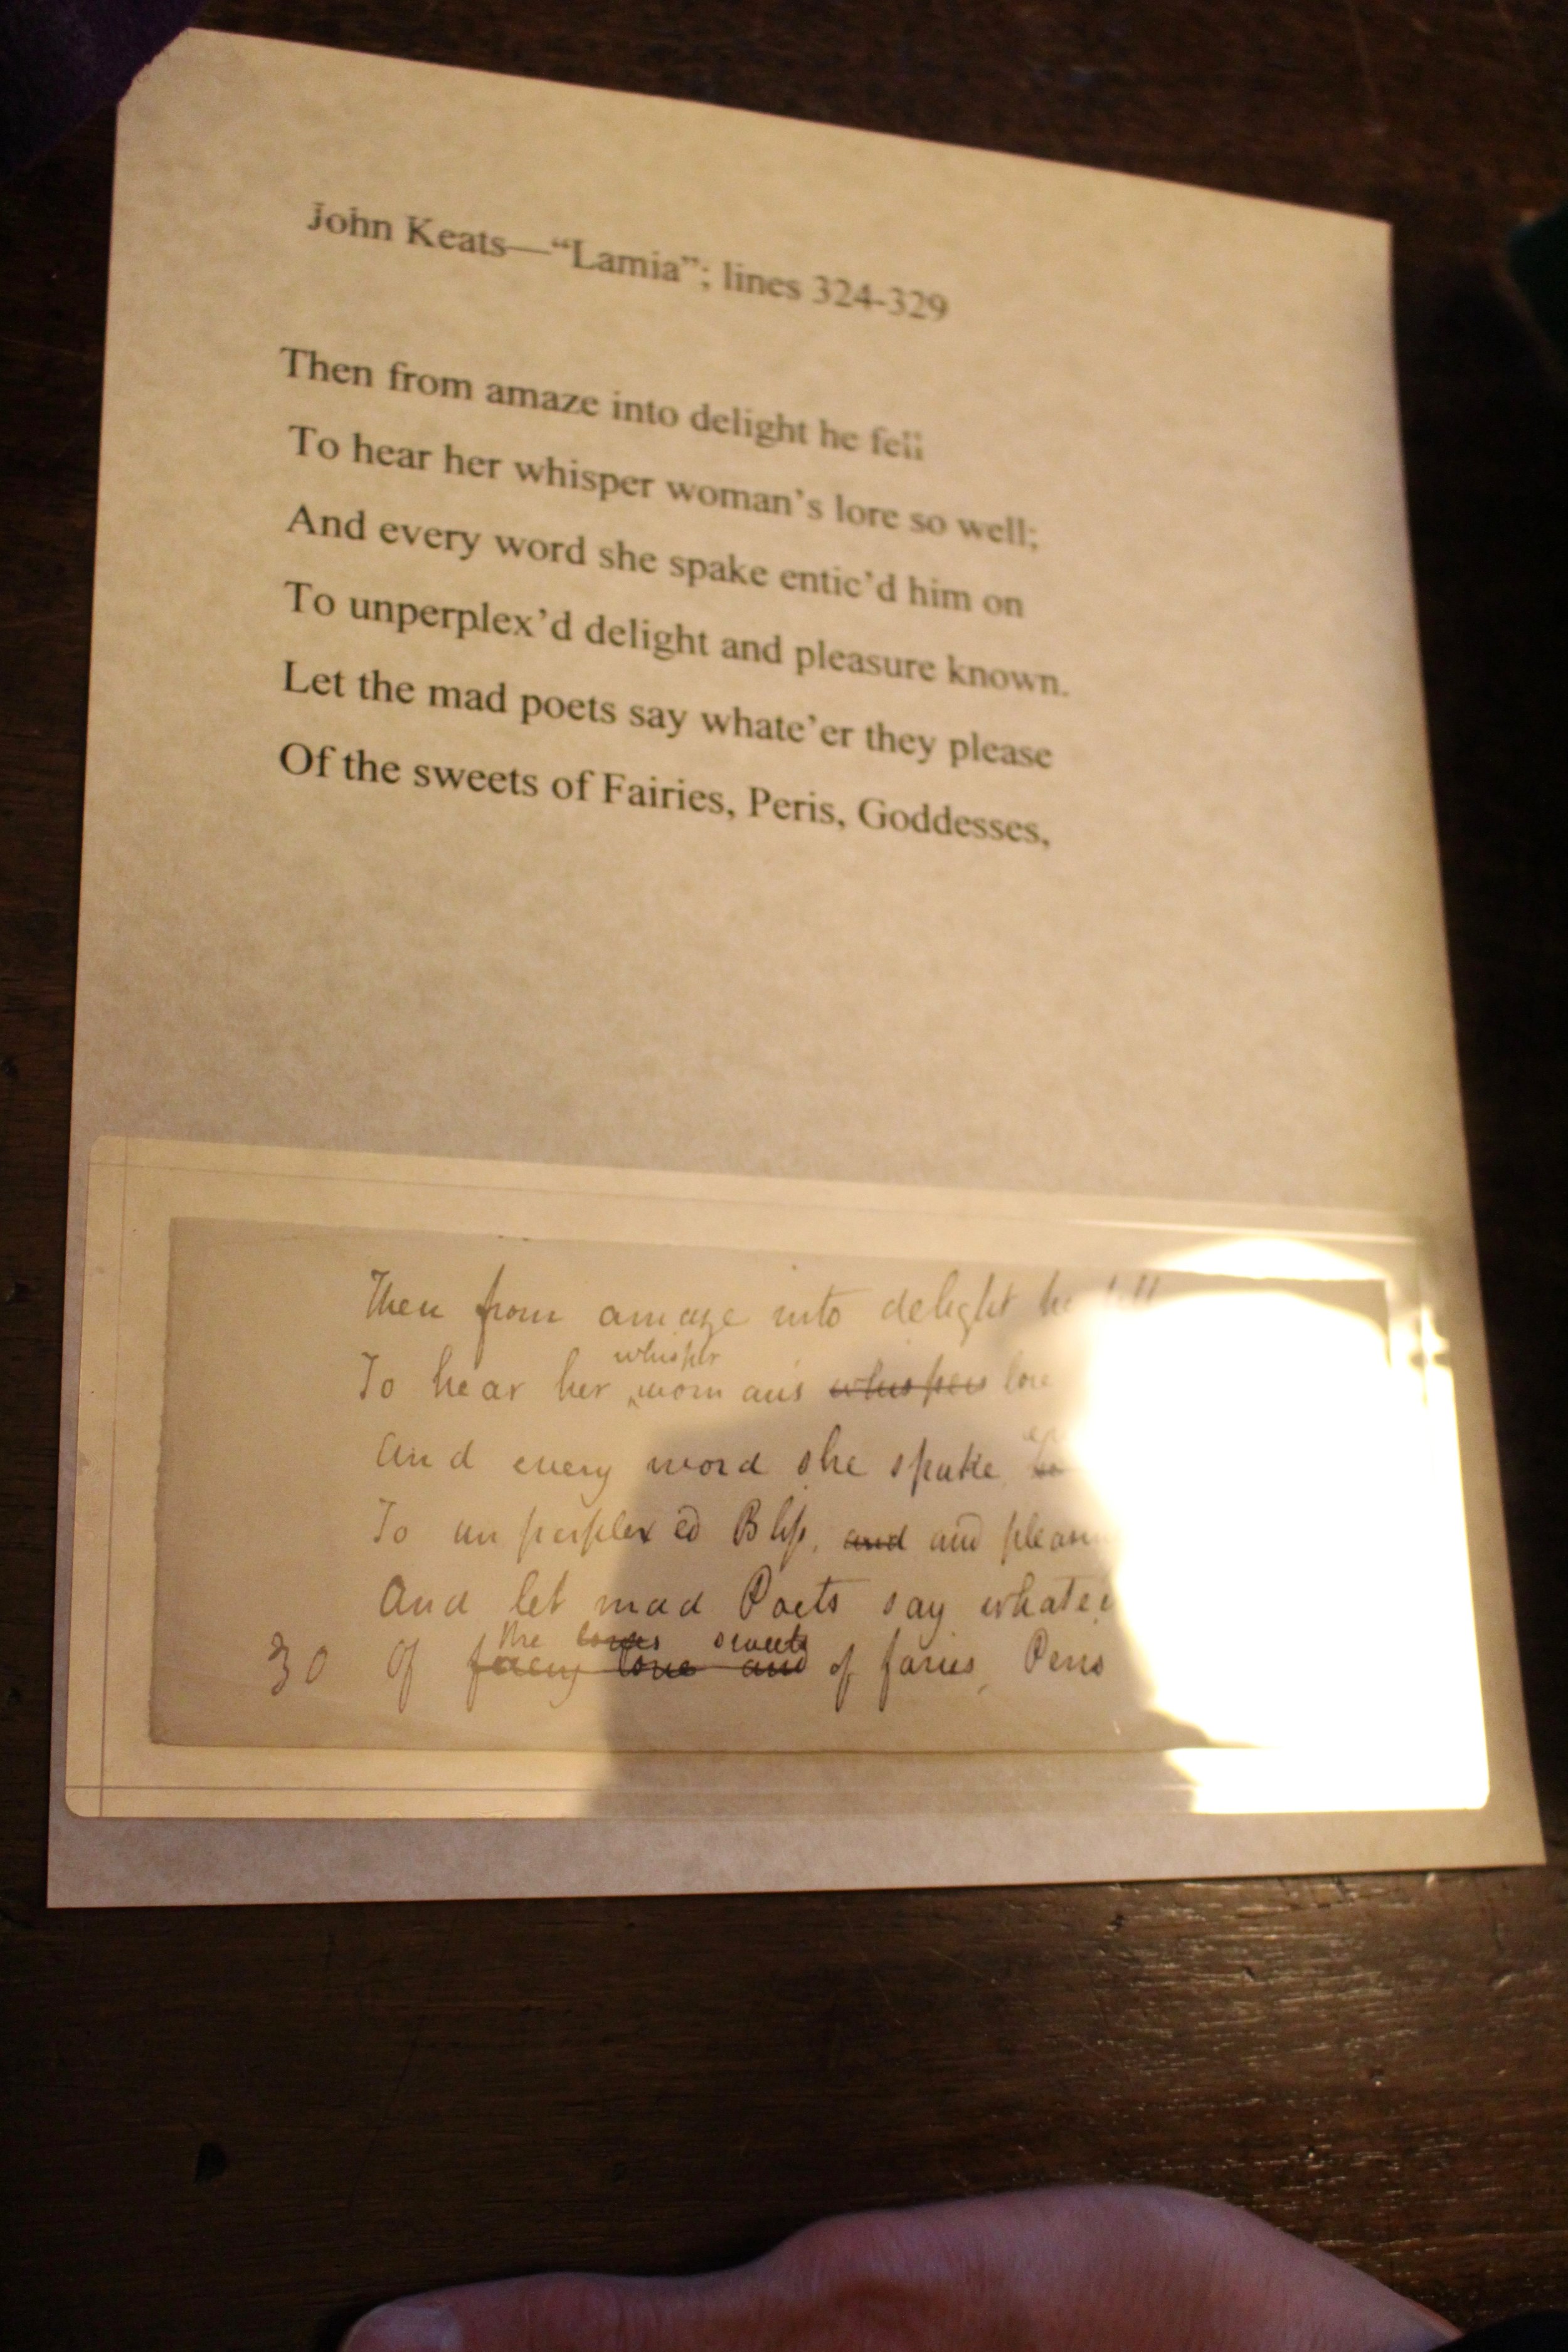 John Keats—“Lamia”; lines 324-329
Then from amaze into delight he fell
To hear her whisper woman’s lore so well;
And every word she spake entic’d him on
To unperplex’d delight and pleasure known.
Let the mad poets say whate’er they please
Of the sweets of Fairies, Peris, Goddesses,
Then from amaze into delight he
whisper
To hear her woman's whispers lore
And every word she spake
To unperplexed Bliss, and and
And let mad Poets say
the loves sweets
30 Of faery love and of faries, Peris